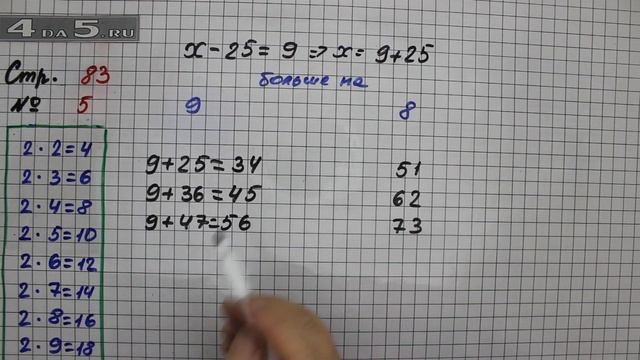 4 DA 5.RU
x - 25 = 9 ⇒ x = 9 + 25
Стр. 83
больше на
№ 5
9
8
2 · 2 = 4
2 · 3 = 6
2 · 4 = 8
2 · 5 = 10
2 · 6 = 12
2 · 7 = 14
2 · 8 = 16
2 · 9 = 18
9 + 25 = 34
9 + 36 = 45
9 + 47 = 56
51
62
73